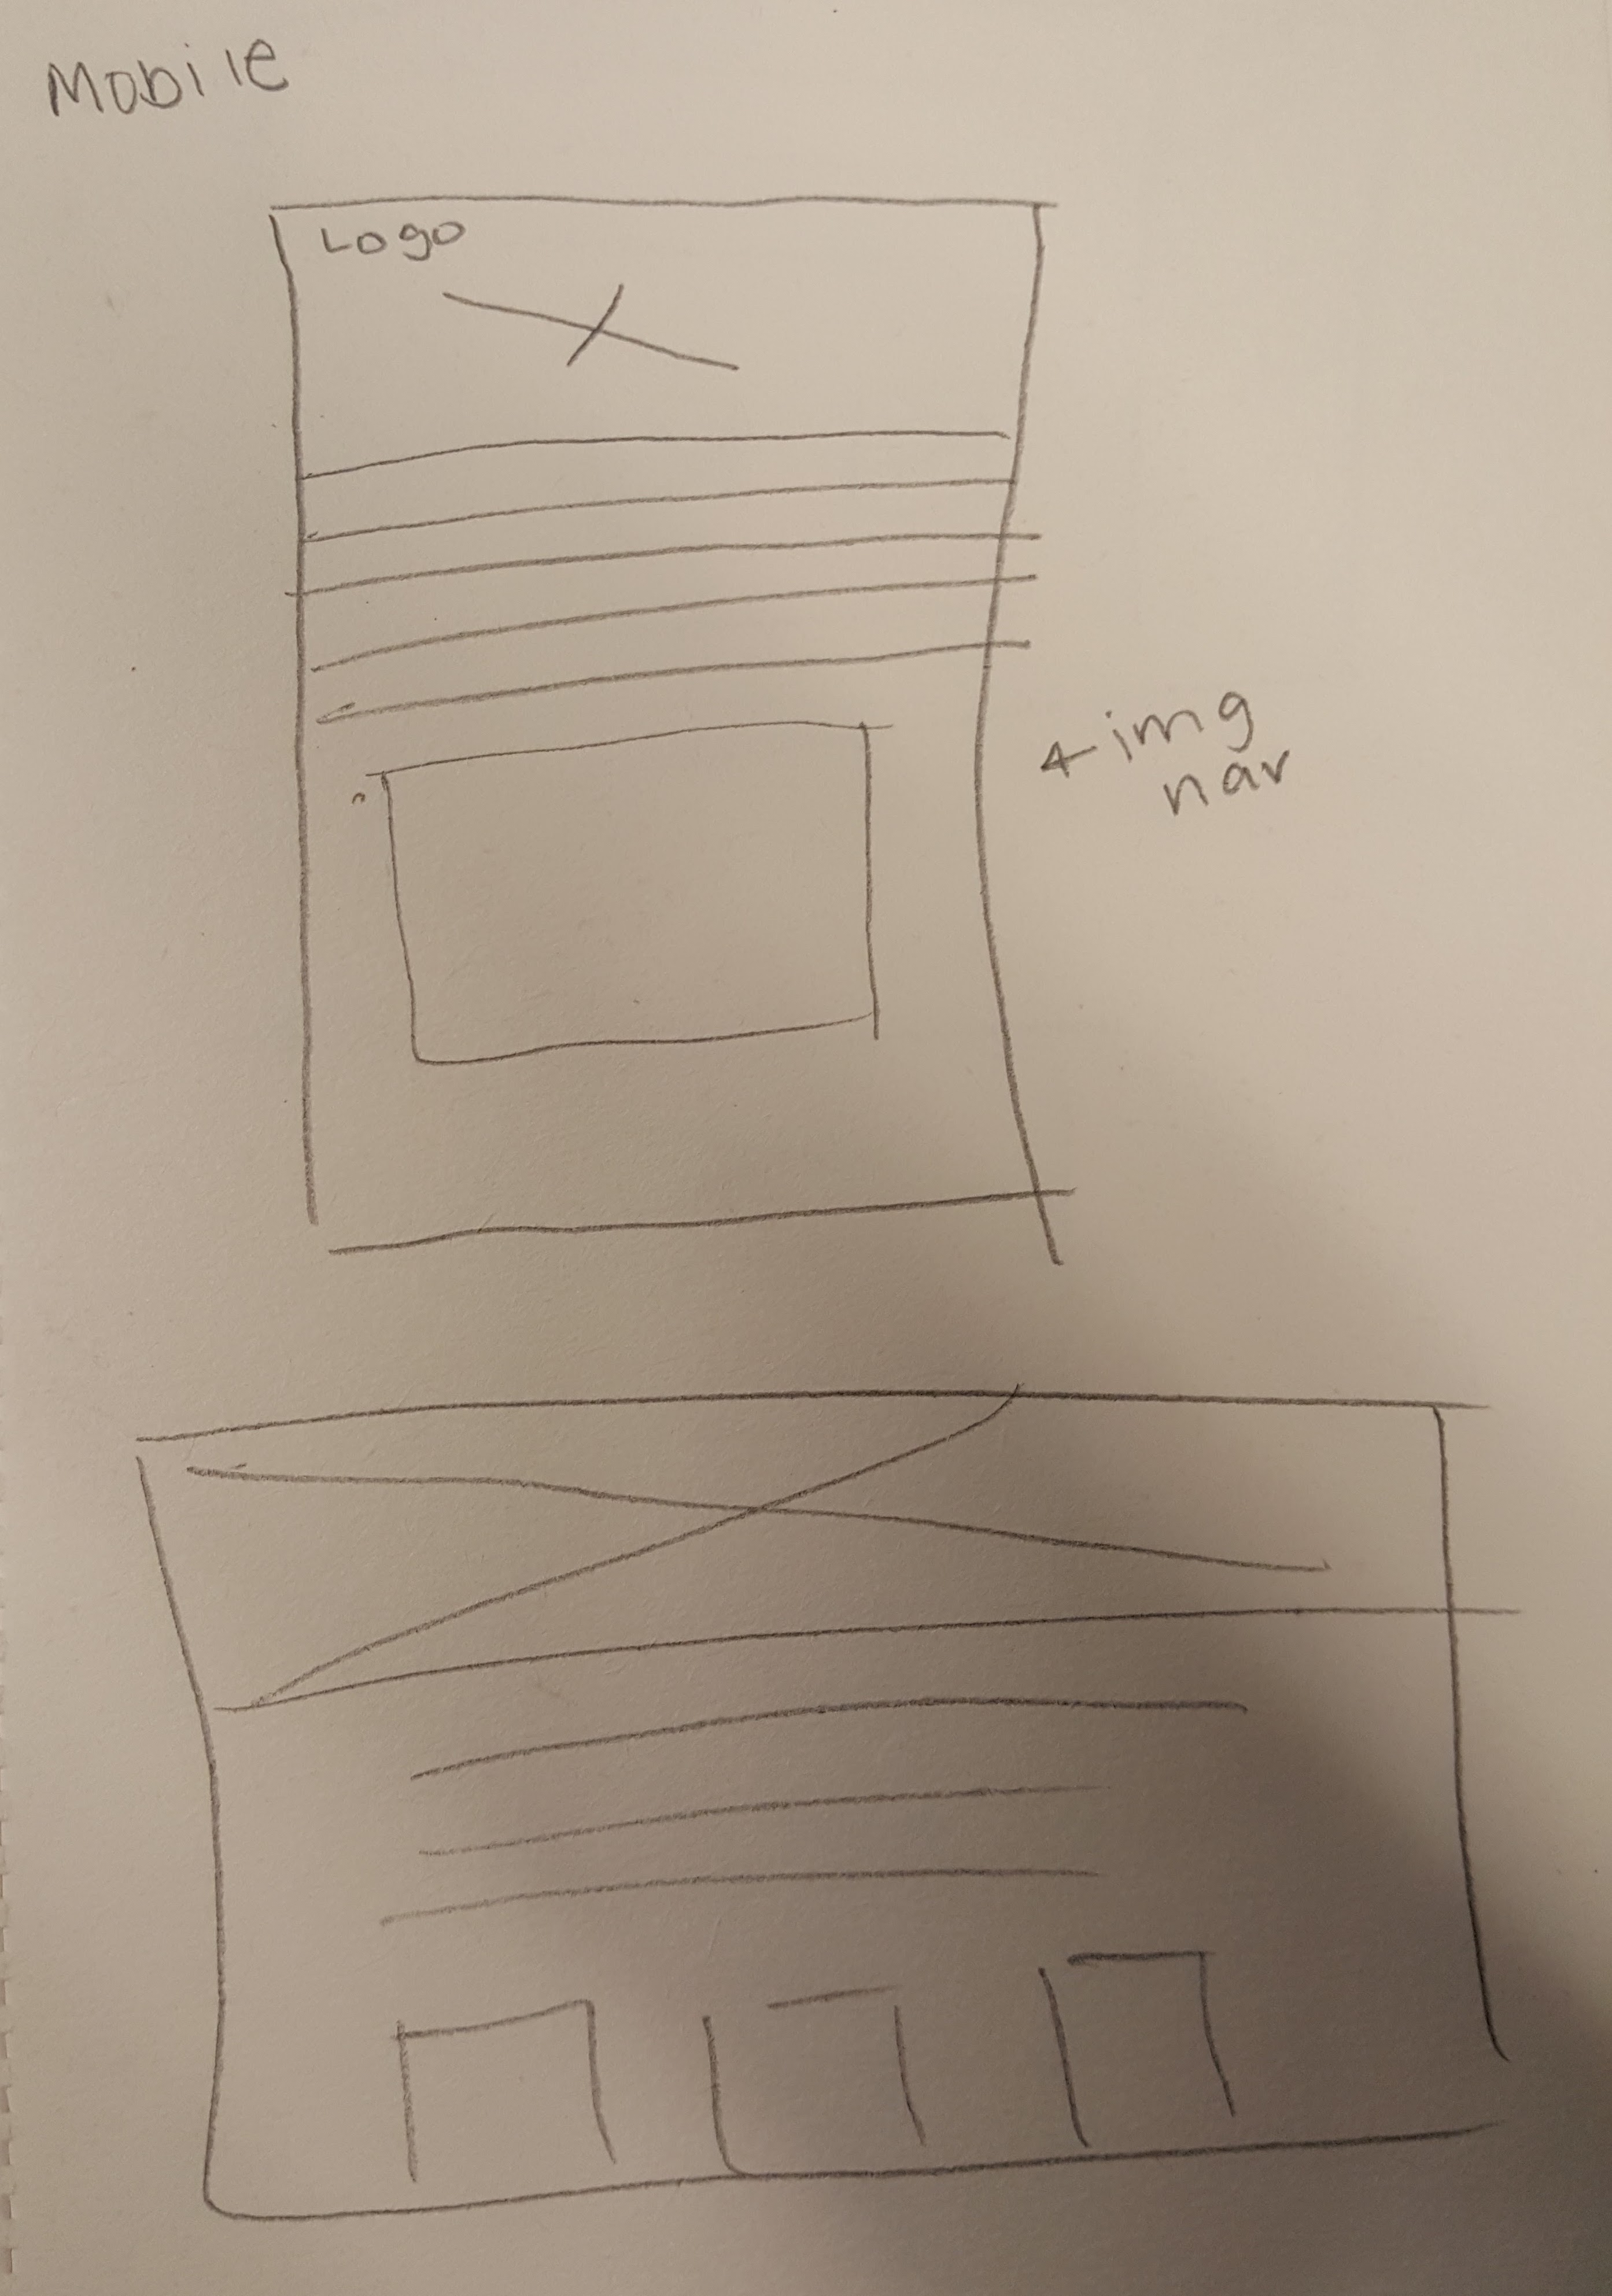 Mobile
Logo
img
nav